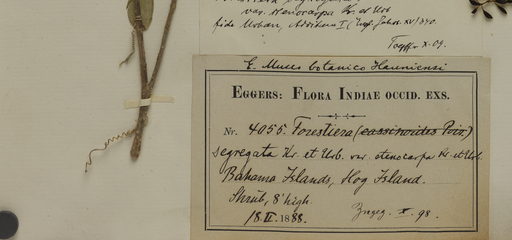 var. stenocarpa Kr. et Urb
fide Urban, Additam I (Engl. Jahrb. XV) 340.
X. 09.
E Museo botanico Hauniensi
EGGERS: FLORA INDIAE OCCID. EXS.
Nr. 4055. Forestiera (cassinoides Poir)
segregata Kr. et Urb. var. stenocarpa Kr. et Urb.
Bahama Islands, Hog Island.
Shrub, 8' high.
18. II. 1888. X. 98.